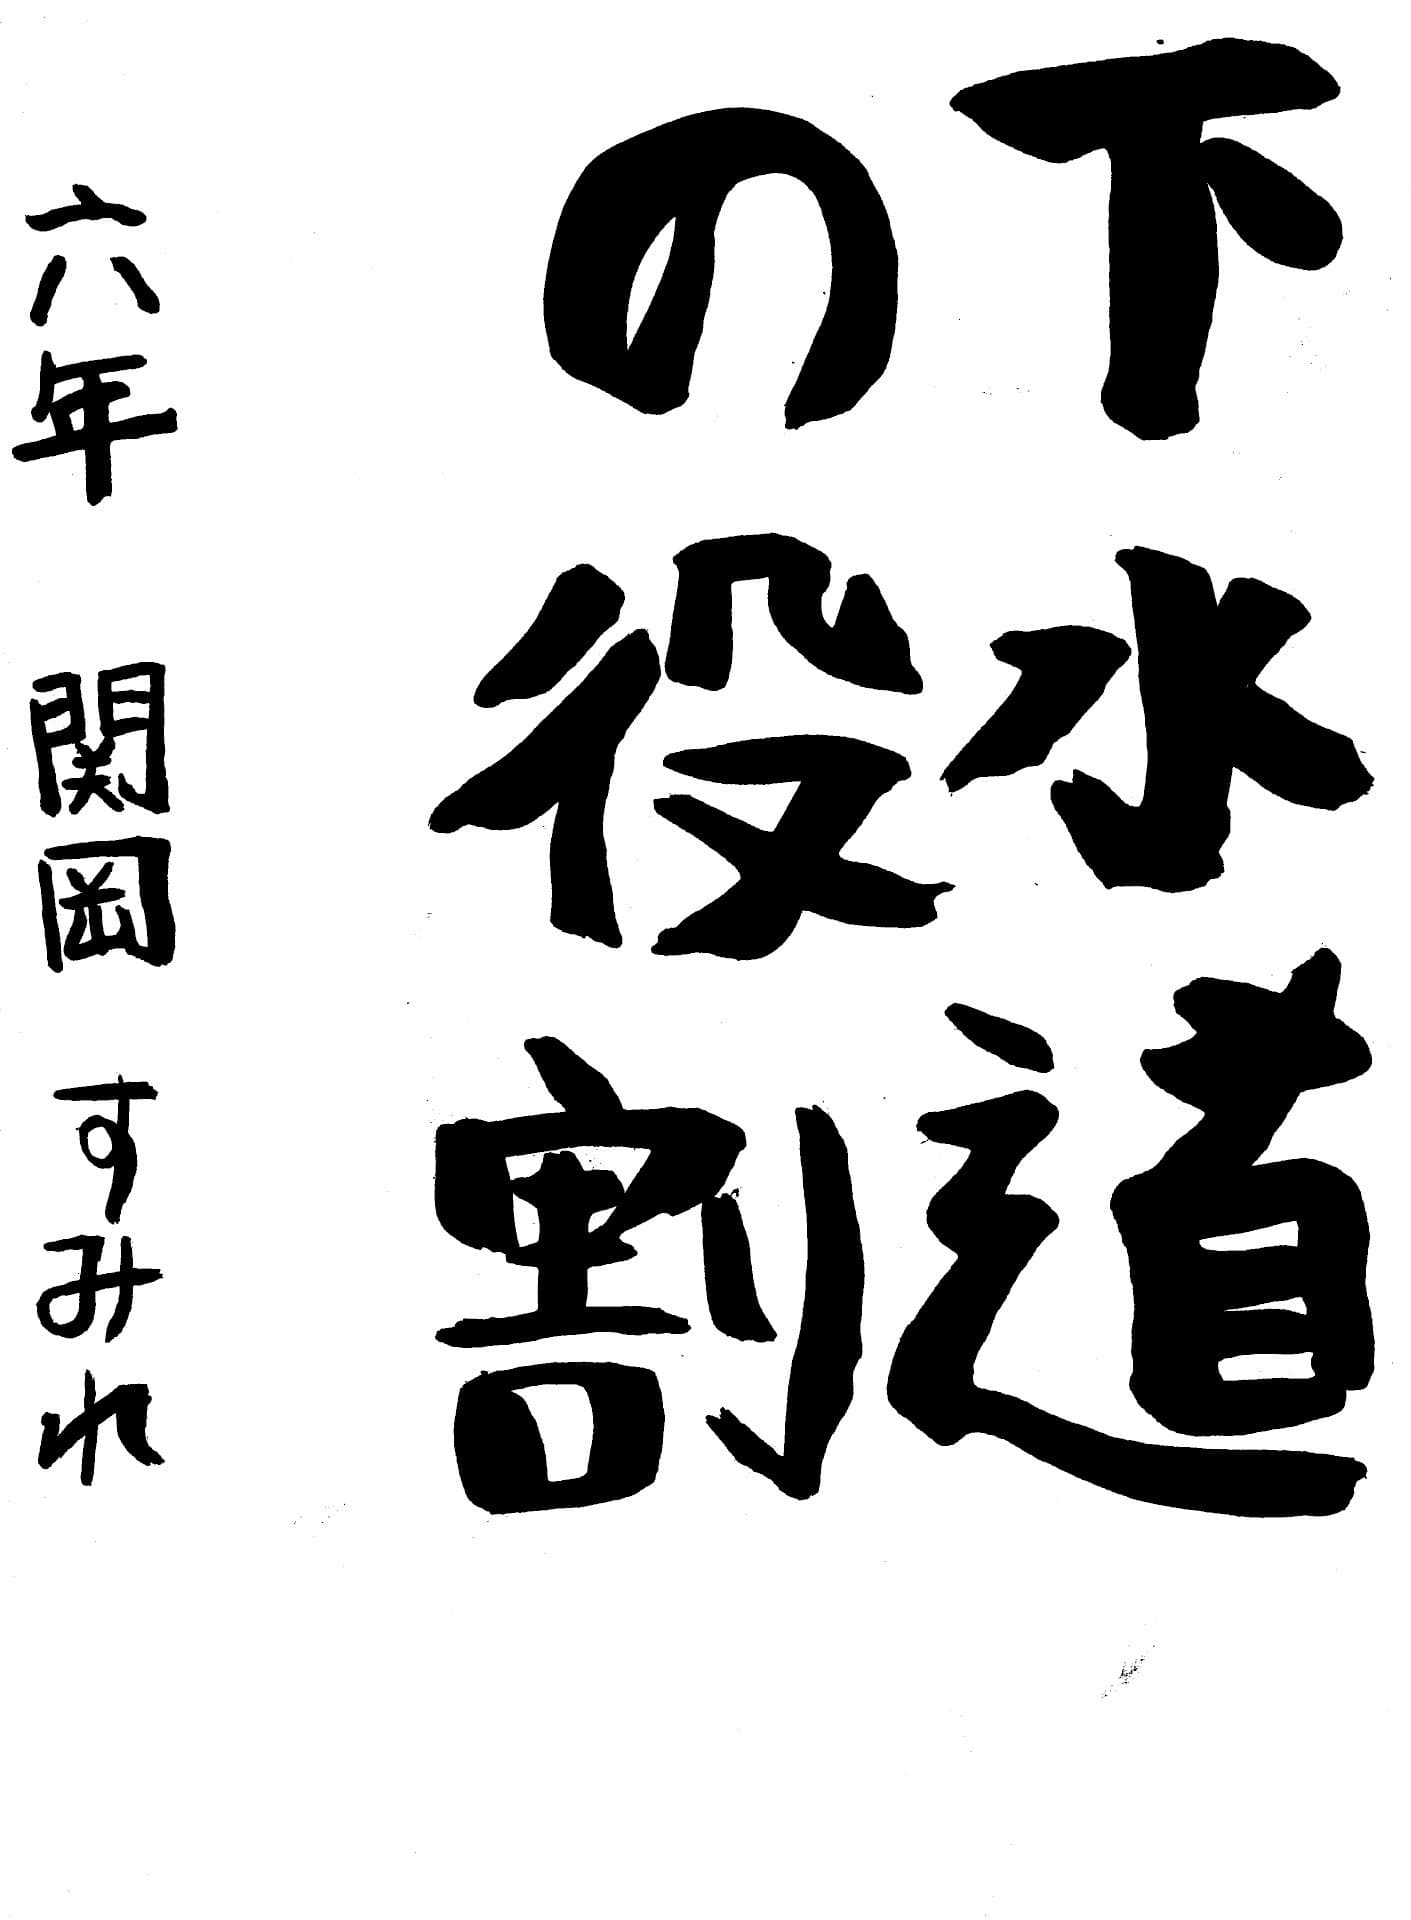 下水道
の役割
六年 関岡 すみれ